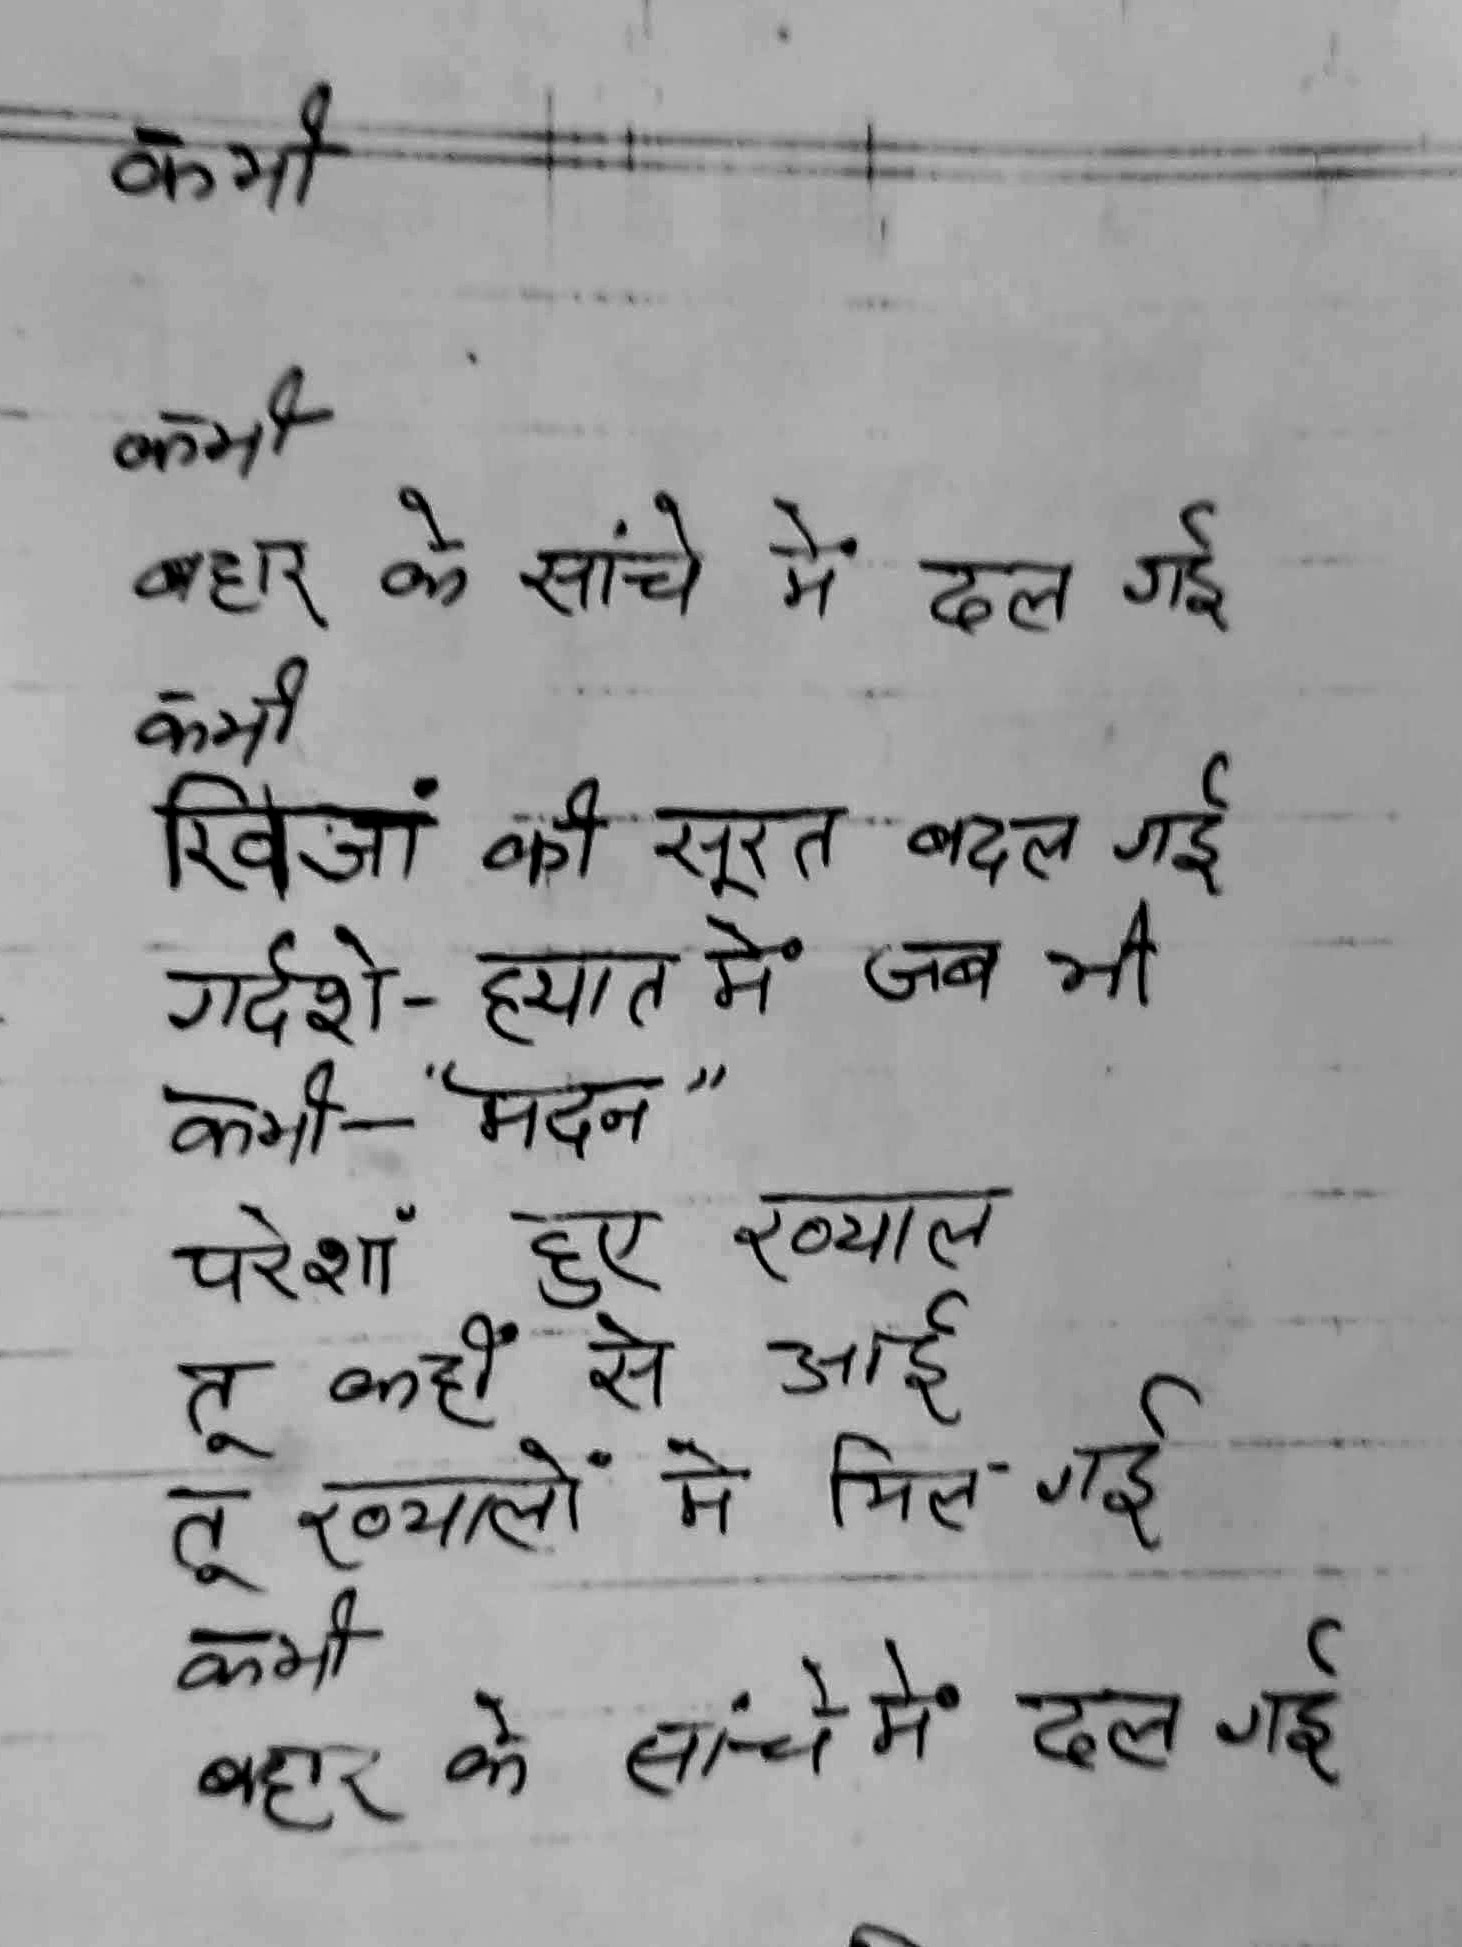 कभी
कभी
बहार के सांचे में ढल गई
कभी
खिजां की सूरत बदल गई
गर्दशे-हयात में जब भी
कभी-"मदन"
परेशां हुए ख्याल
तू कहीं से आई
तू ख्यालों में मिल गई
कभी
बहार के सांचे में ढल गई